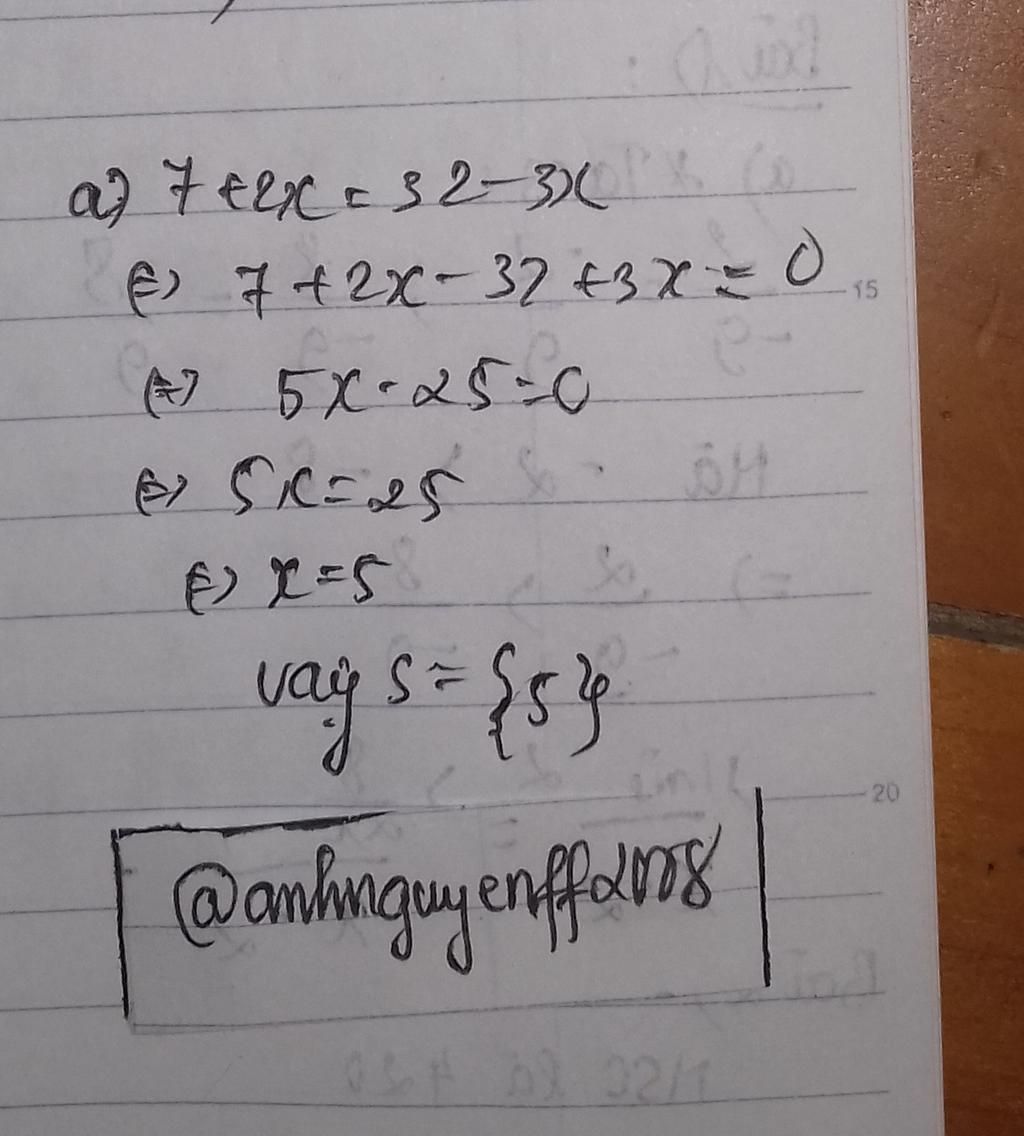 a) 7+2x=32-3x
⇔ 7+2x-32+3x=0
15
⇔ 5x-25=0
⇔ 5x=25
⇔ x=5
vậy S={5}
20
@anhnguyenff2008